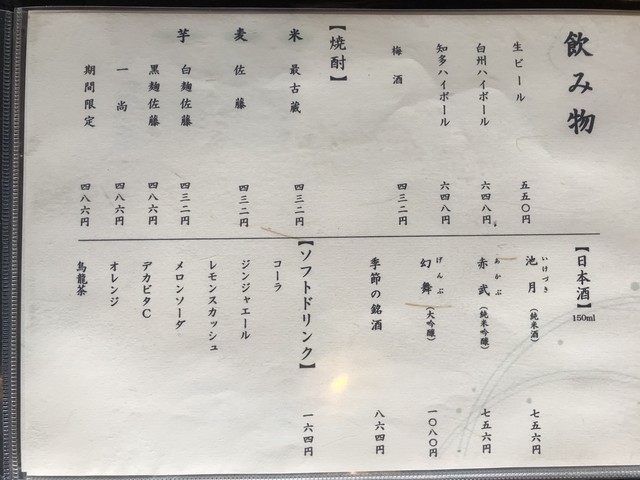 飲み物
生ビール 五五〇円
白州ハイボール 六四八円
知多ハイボール 六四八円
梅酒 四三二円
【焼酎】
米 最古蔵 四三二円
麦 佐藤 四三二円
芋 白麹佐藤 四三二円
黒麹佐藤 四八六円
一尚 四八六円
期間限定 四八六円
【日本酒】150ml
いけづき
池月（純米酒） 七五六円
あかぶ
赤武（純米吟醸） 七五六円
げんぶ
幻舞（大吟醸） 一〇八〇円
季節の銘酒 八六四円
【ソフトドリンク】 一六四円
コーラ
ジンジャエール
レモンスカッシュ
メロンソーダ
デカビタC
オレンジ
烏龍茶